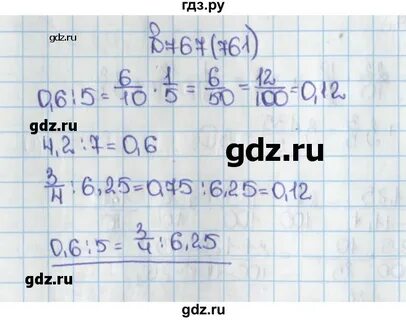 гдз.ру
В767(761)
0,6:5= 6/10 · 1/5 = 6/50 = 12/100 = 0,12
gdz.ru gdz.ru
4,2:7=0,6
3/4 : 6,25=0,75 : 6,25=0,12
gdz.ru gdz.ru
0,6:5= 3/4 : 6,25
gdz.ru gdz.ru